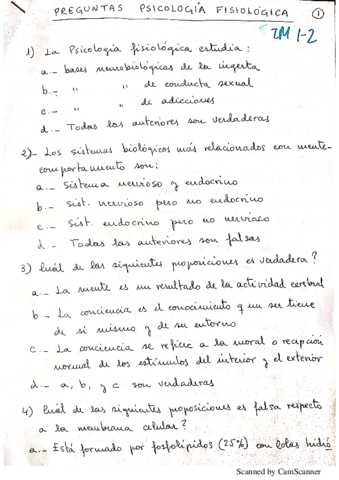 PREGUNTAS PSICOLOGÍA FISIOLÓGICA 1
TM 1-2
1) La Psicología fisiológica estudia:
a.- bases neurobiológicas de la ingesta
b.- " " de conducta sexual
c.- " " de adicciones
d.- Todas las anteriores son verdaderas
2)- Los sistemas biológicos más relacionados con mente-
comportamiento son:
a.- Sistema nervioso y endocrino
b.- Sist. nervioso pero no endocrino
c.- Sist. endocrino pero no nervioso
d.- Todas las anteriores son falsas
3) Cuál de las siguientes proposiciones es verdadera?
a.- La mente es un resultado de la actividad cerebral
b.- La conciencia es el conocimiento q un ser tiene
de sí mismo y de su entorno
c.- La conciencia se refiere a la moral o recepción
normal de los estímulos del interior y el exterior
d.- a, b, y c son verdaderas
4) Cuál de las siguientes proposiciones es falsa respecto
a la membrana celular?
a.- Está formado por fosfolípidos (25%) con colas hidró
Scanned by CamScanner